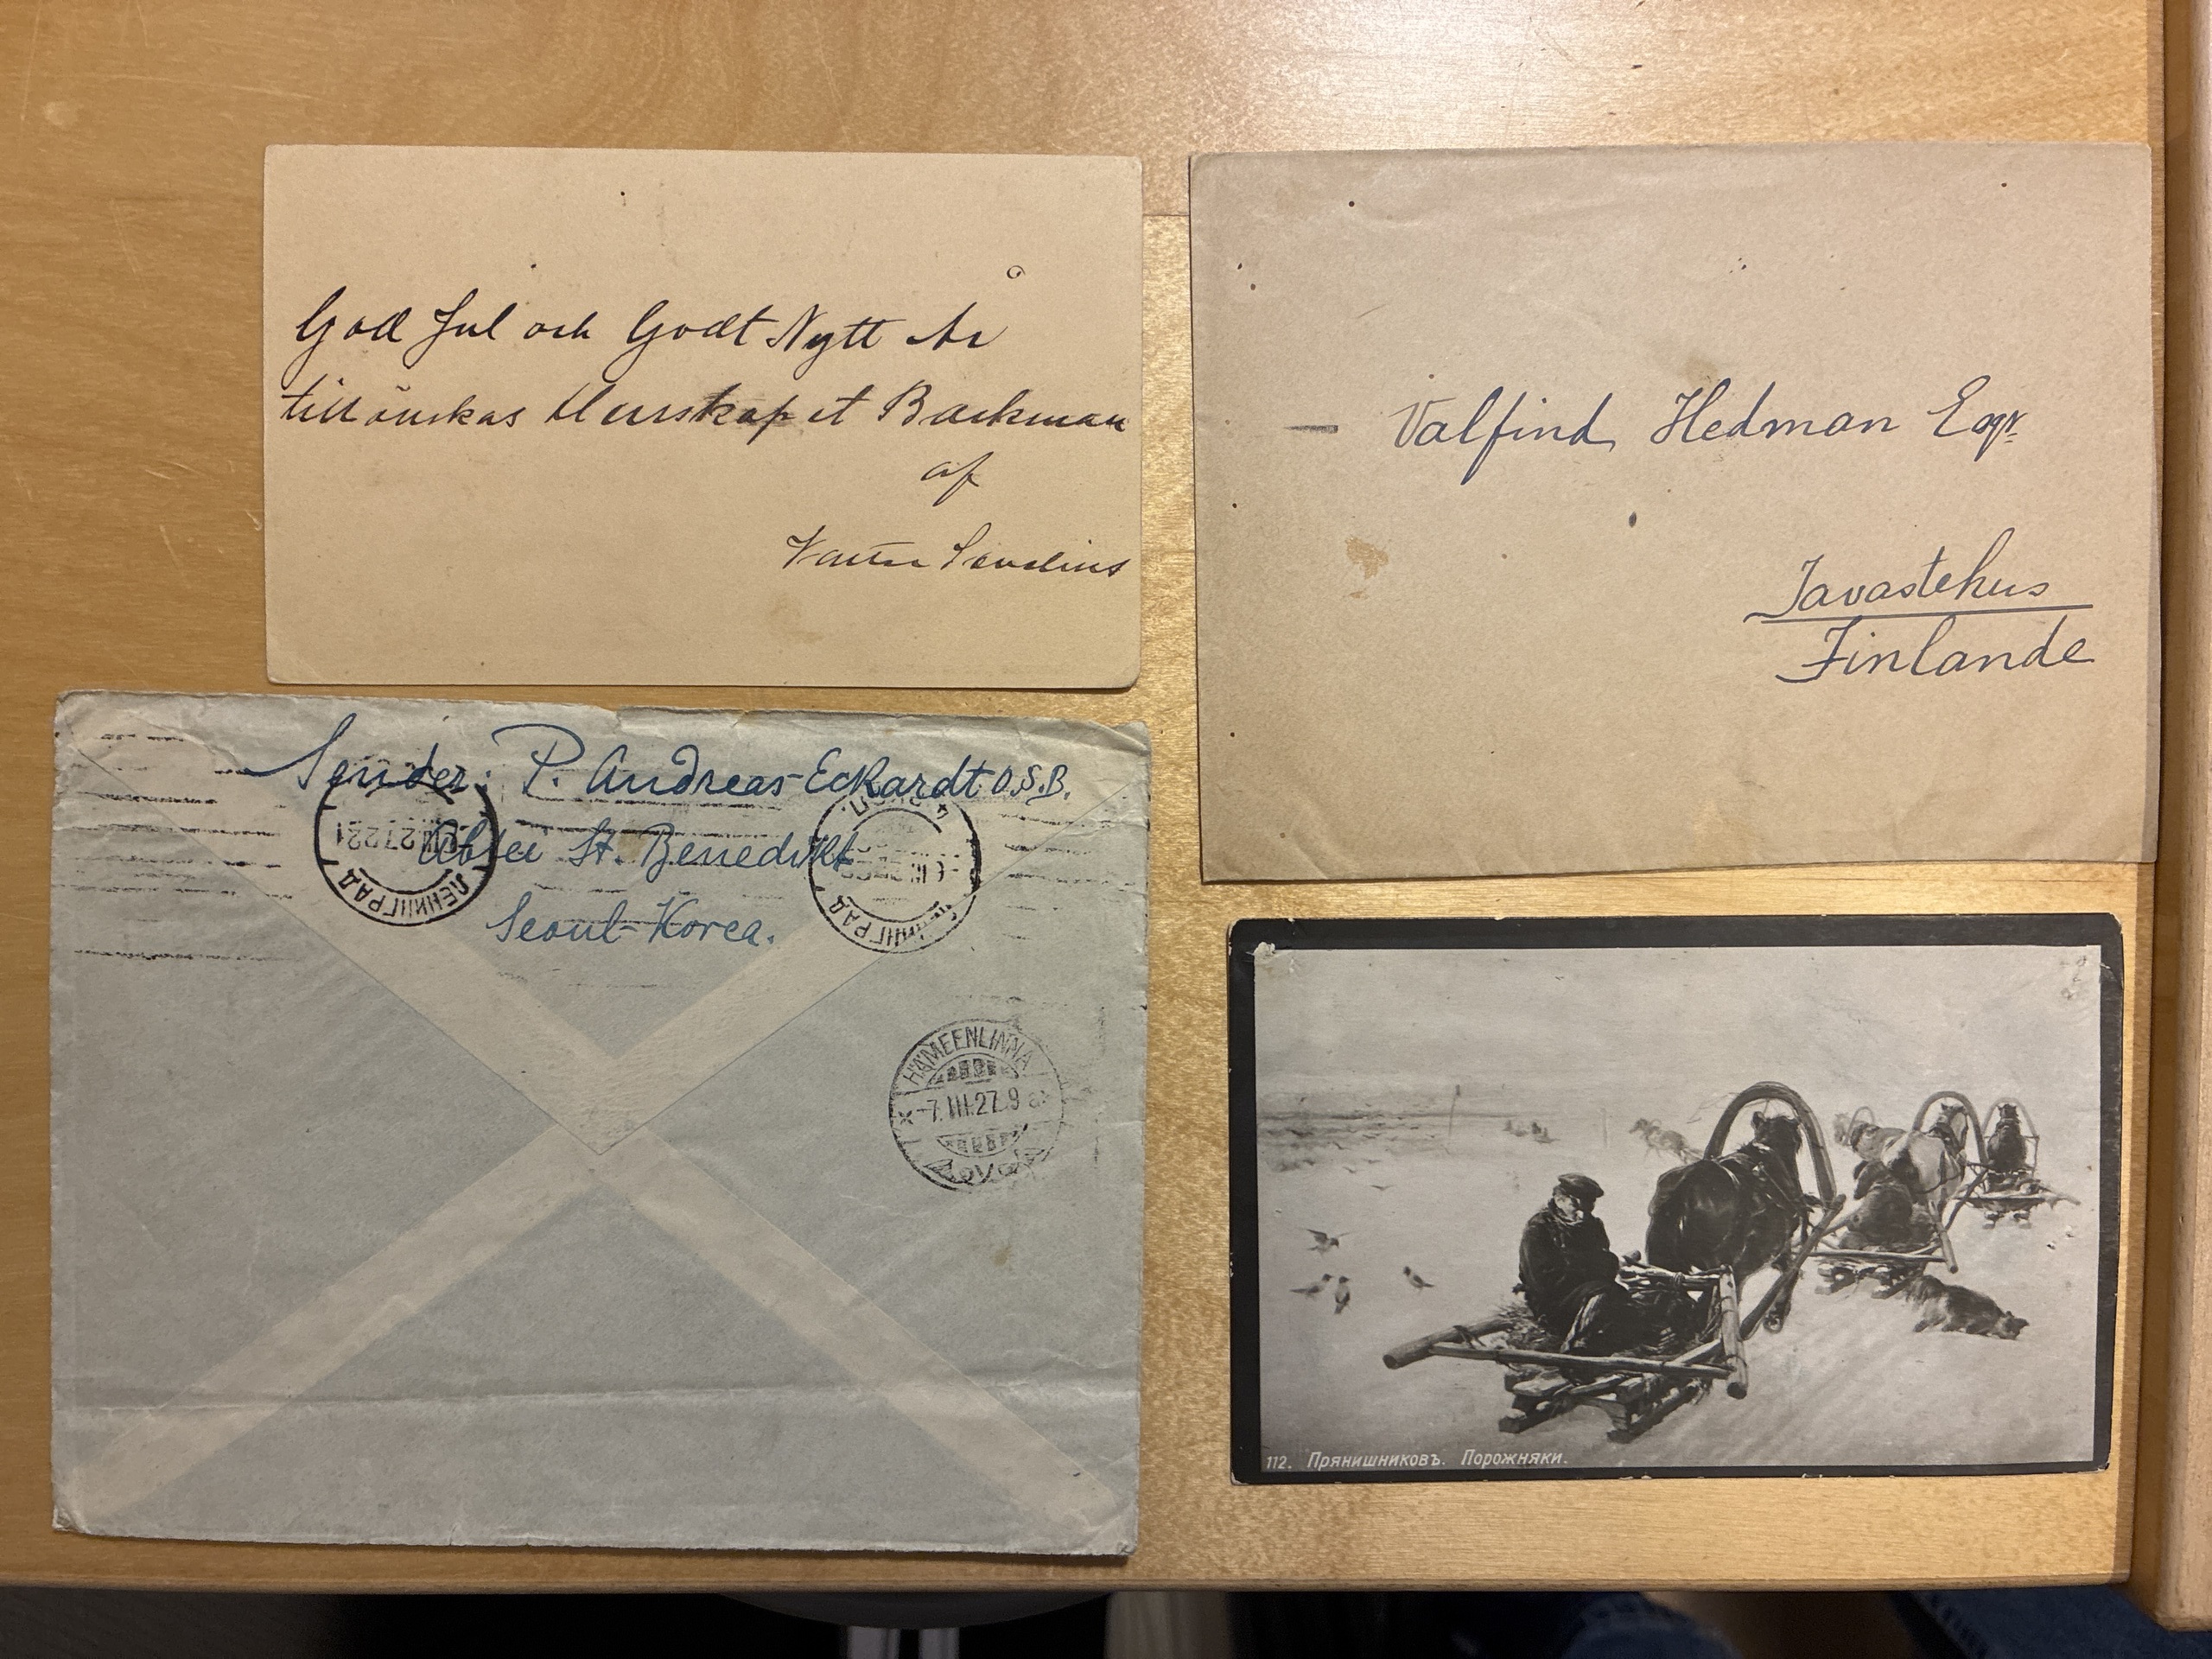 God Jul och Godt Nytt År
tillönskas Herrskapet Backman
af
Valfind Hedman Eqr.
Tavastehus
Finlande
Sender: P. Andreas Eckardt O.S.B.
Abtei St. Benedikt
Seoul-Korea.
ЛЕНИНГРАД
ЛЕНИНГРАД
HÄMEENLINNA
-7.III.27.9
112. Прянишниковъ. Порожняки.